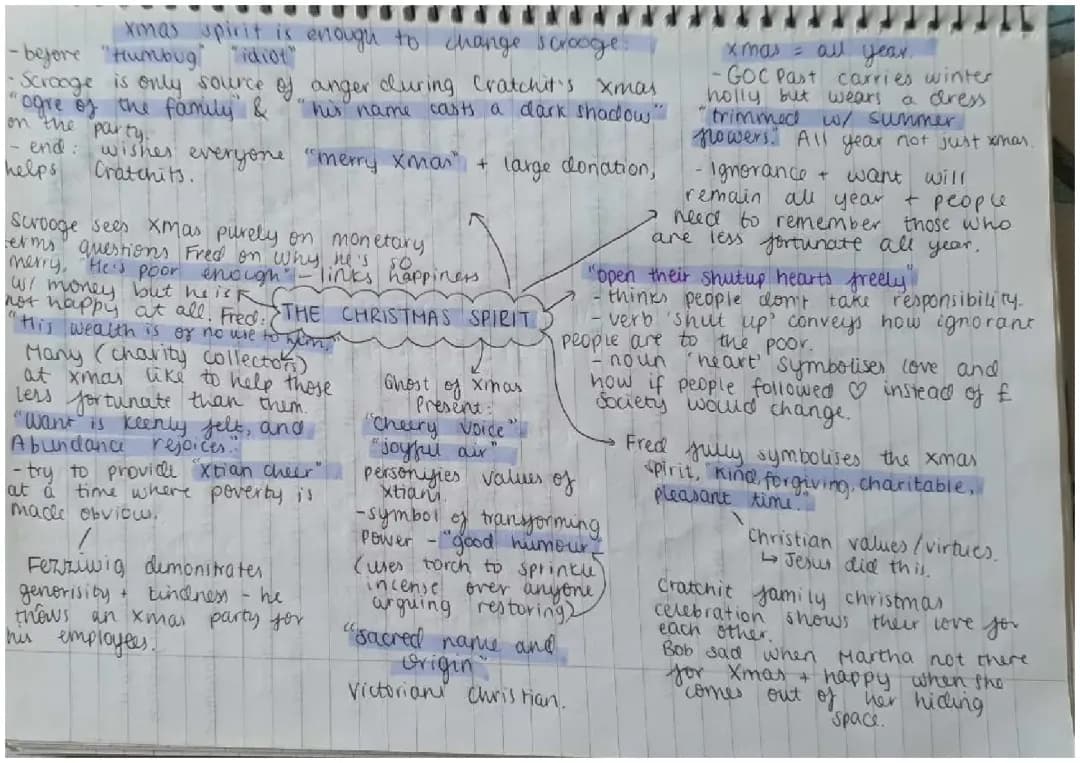 xmas spirit is enough to change scrooge:
- before "Humbug" "idiot"
- Scrooge is only source of anger during Cratchit's xmas
"ogre of the family" & "his name casts a dark shadow"
on the party.
- end: wishes everyone "merry xmas" + large donation,
helps Cratchits.
xmas = all year.
- GOC Past carries winter
holly but wears a dress
"trimmed w/ summer
flowers." All year not just xmas.
- Ignorance + want will
remain all year + people
need to remember those who
are less fortunate all year.
Scrooge sees xmas purely on monetary
terms, questions Fred on why he's so
merry, "He's poor enough" - links happiness
w/ money but he is
not happy at all. Fred:
"His wealth is of no use to him."
THE CHRISTMAS SPIRIT
"open their shutup hearts freely"
- thinks people don't take responsibility.
- verb 'shut up' conveys how ignorant
people are to the poor.
- noun 'heart' symbolises love and
how if people followed ♡ instead of £
society would change.
Many (charity collectors)
at xmas like to help those
less fortunate than them.
"Want is keenly felt, and
Abundance rejoices."
- try to provide "xtian cheer"
at a time where poverty is
made obviou.
Fezziwig demonstrates
generisity + kindness - he
throws an xmas party for
his employees.
Ghost of xmas
Present:
"cheery voice"
"joyful air"
personifies values of
xtiani.
- symbol of transforming
power - "good humour"
(uses torch to sprinkle
incense over anyone
arguing restoring)
"sacred name and
origin"
Victorians Christian.
Fred fully symbolises the xmas
spirit, "kind, forgiving, charitable,
pleasant time."
Christian values/virtues.
↳ Jesus did this.
Cratchit family christmas
celebration shows their love for
each other.
Bob sad when Martha not there
for xmas + happy when she
comes out of her hiding
space.